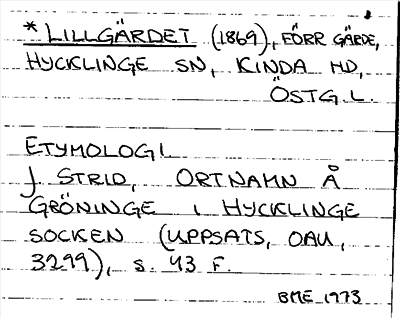 * LILLGÄRDET (1869), FÖRR GÄRDE,
HYCKLINGE SN, KINDA HD,
ÖSTG.L.
ETYMOLOGI
J STRID, ORTNAMN Å
GRÖNINGE I HYCKLINGE
SOCKEN (UPPSATS, OAU,
3299), S. 43 F.
BME 1973